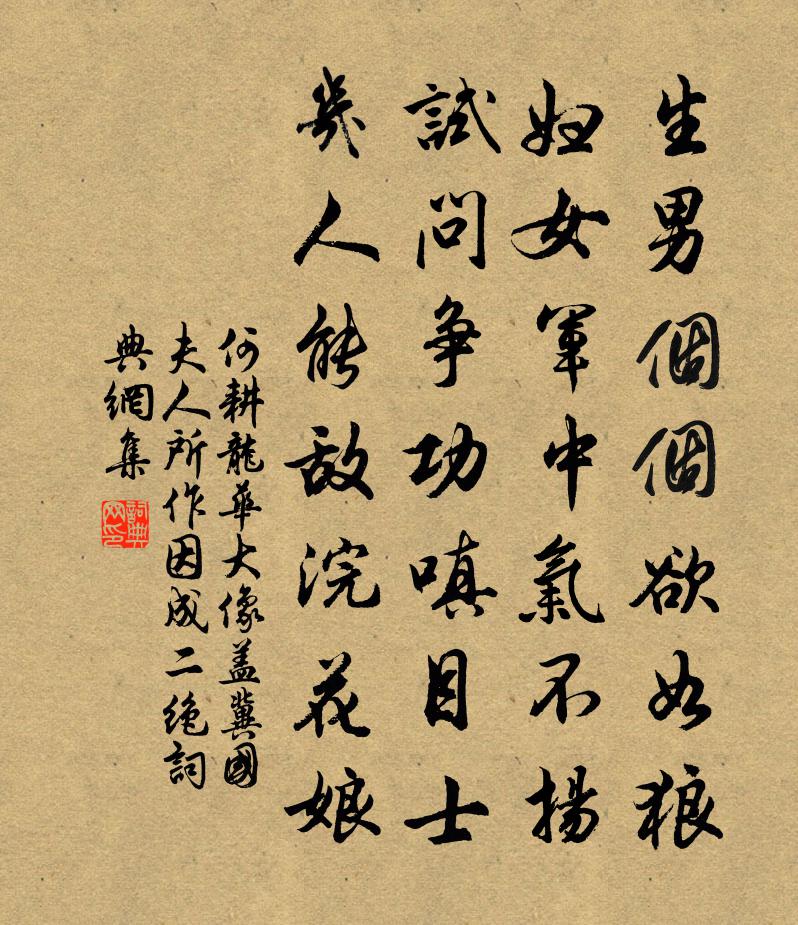 生男個個欲如狼
婦女軍中氣不揚
試問爭功嗔目士
幾人能敵浣花娘
何耕龍華大像蓋冀國
夫人所作因成二絕詞
典網集
詞典
网印